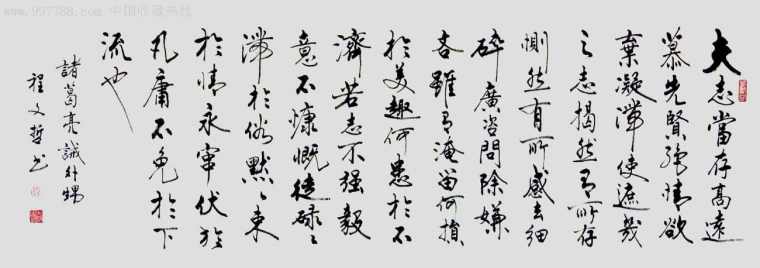 www.997788.com 中国收藏热线
夫志當存高遠
慕先賢絕情欲
棄凝滯使遮幾
之志揭然有所存
惻然有所感去細
碎廣咨問除嫌
吝雖有淹留何損
於美趣何患於不
濟若志不强毅
意不慷慨徒碌々
滯於俗默々束
於情永竄伏於
凡庸不免於下
流也
諸葛亮誡外甥
程文哲书